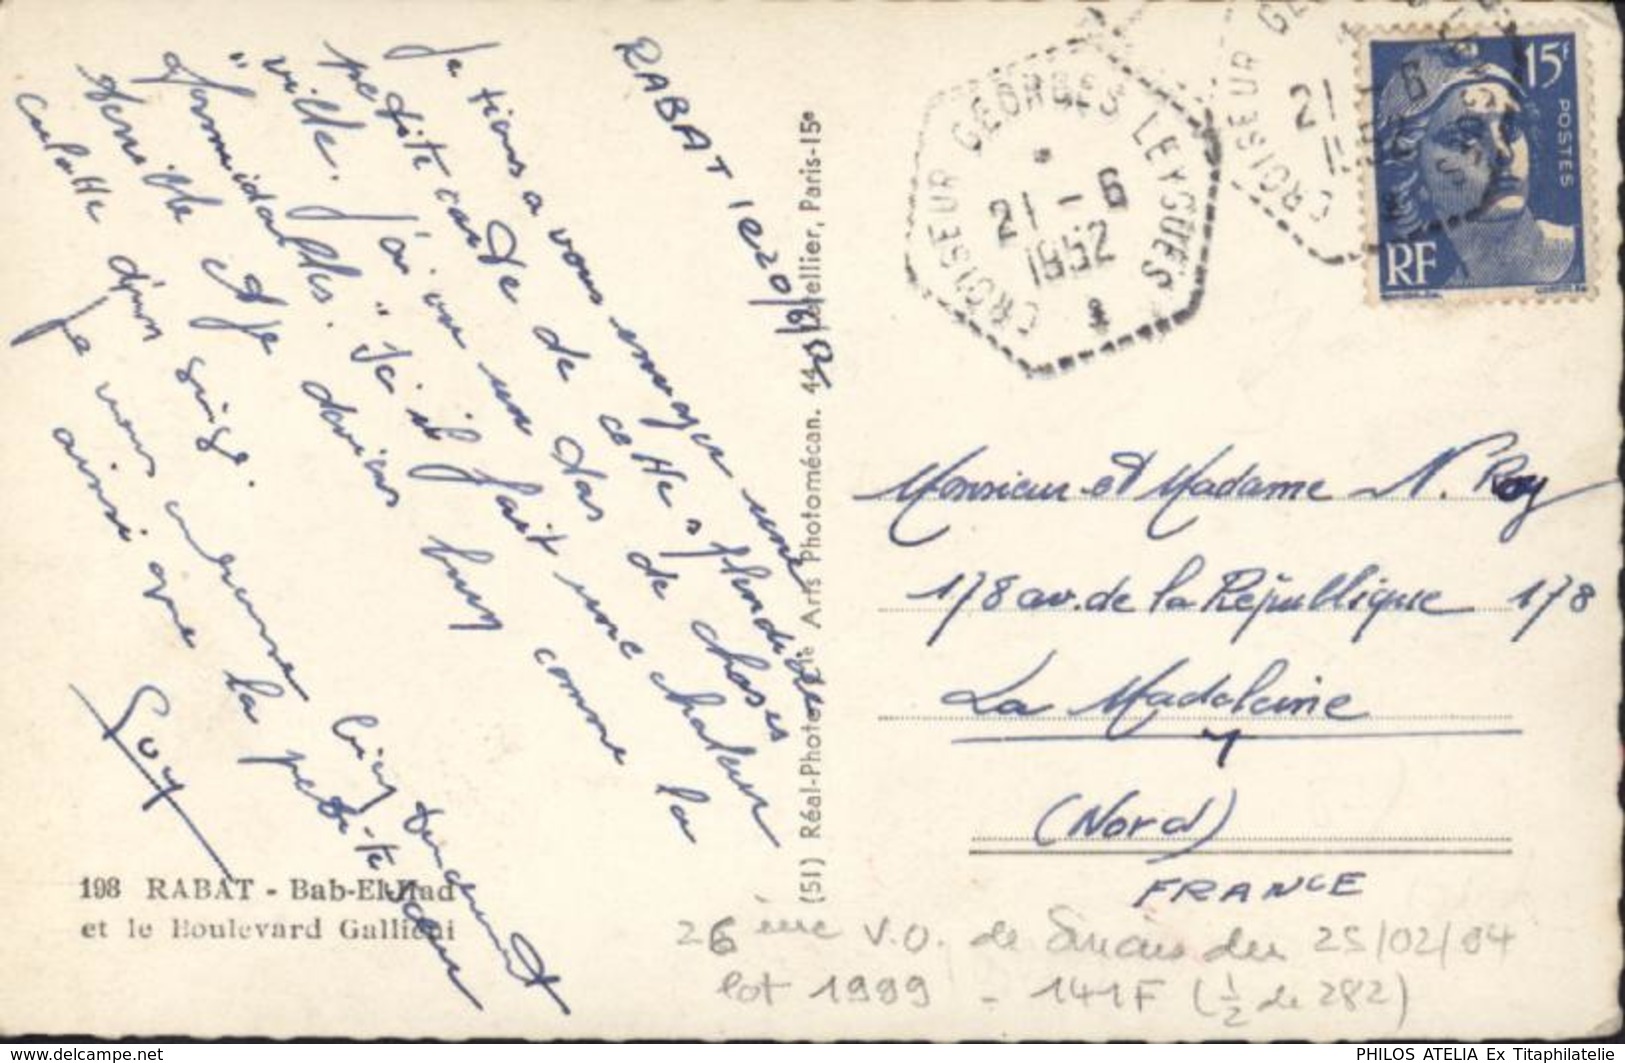 RABAT le 20/6/52
Je tiens a vous envoyer une
petite carte de cette "splendide
ville. J'ai vu un tas de choses
"formidables." Ici il fait une chaleur
terrible et je deviens brun comme la
culotte d'un singe.
Je vous embrasse bien tendrement
ainsi que la petite sœur
Guy
198 RABAT - Bab-El-Had
et le Boulevard Gallieni
(51) Réal-Photo, Cie Arts Photomécan. 44, Letellier, Paris-15e
CROISEUR GEORGES LEYGUES
21 - 6
1952
CROISEUR GE
21 - 6
15F
POSTES
RF
Monsieur et Madame N. Roy
178 av. de la République 178
La Madeleine
(Nord)
FRANCE
26 ème V.O. de du 25/02/04
lot 1999 - 141F (1/2 de 282)
PHILOS ATELIA Ex Titaphilatelie
www.delcampe.net